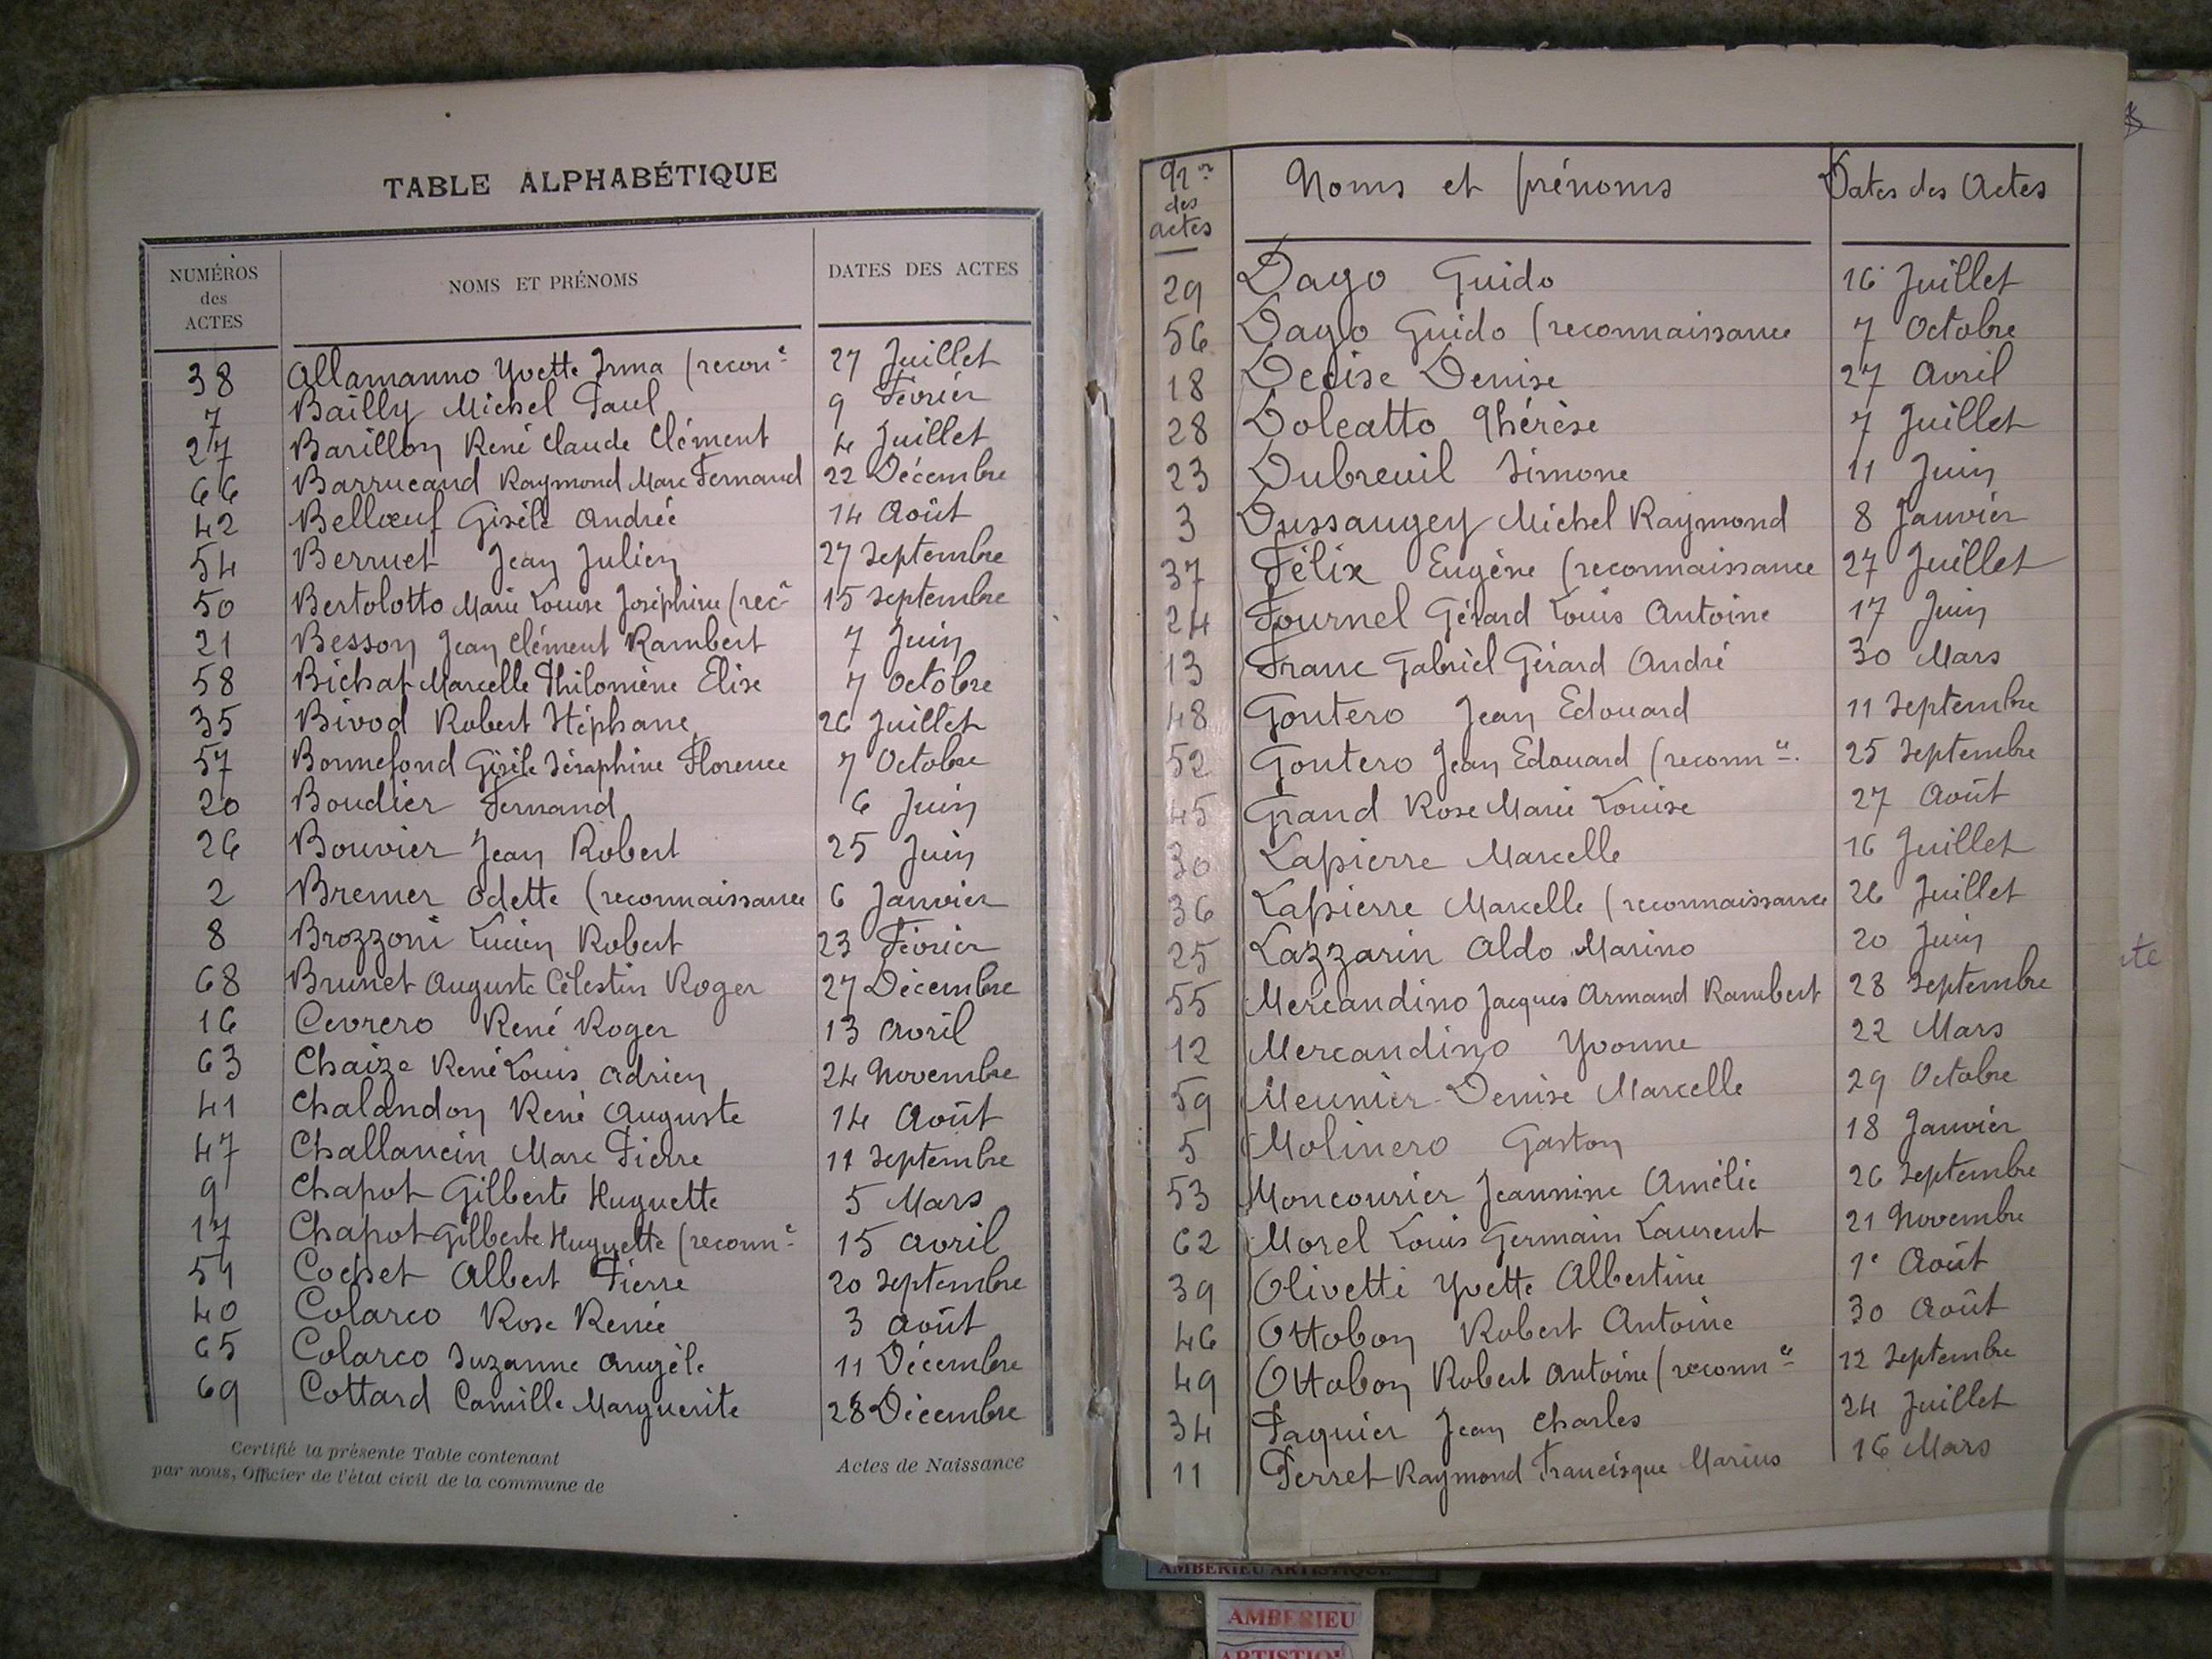 TABLE ALPHABÉTIQUE
NUMÉROS des ACTES NOMS ET PRÉNOMS DATES DES ACTES
38 Allamanno Yvette Irma (recon^e 27 Juillet
7 Bailly Michel Paul 9 Février
27 Barillon René Claude Clément 4 Juillet
66 Barrucand Raymond Marc Fernand 22 Décembre
42 Bellœuf Gisèle Andrée 14 Août
54 Berruet Jean Julien 27 Septembre
50 Bertolotto Marie Louise Joséphine (rec^e 15 Septembre
21 Besson Jean Clément Rambert 7 Juin
58 Bichat Marcelle Philomène Elise 7 Octobre
35 Bivod Robert Stéphane 26 Juillet
57 Bonnefond Gisèle Séraphine Florence 7 Octobre
20 Boudier Fernand 6 Juin
26 Bouvier Jean Robert 25 Juin
2 Bremer Odette (reconnaissance 6 Janvier
8 Brozzoni Lucien Robert 23 Février
68 Brunet Auguste Célestin Roger 27 Décembre
16 Cevrero René Roger 13 Avril
63 Chaize René Louis Adrien 24 Novembre
41 Chalandon René Auguste 14 Août
47 Challancin Marc Pierre 11 Septembre
9 Chapot Gilberte Huguette 5 Mars
17 Chapot Gilberte Huguette (reconn^e 15 Avril
51 Cochet Albert Pierre 20 Septembre
40 Colarco Rose Renée 3 Août
65 Colarco Suzanne Angèle 11 Décembre
69 Cottard Camille Marguerite 28 Décembre
Certifié la présente Table contenant Actes de Naissance
par nous, Officier de l'état civil de la commune de
N^os des actes Noms et prénoms Dates des Actes
29 Dago Guido 16 Juillet
56 Dago Guido (reconnaissance 7 Octobre
18 Decise Denise 27 Avril
28 Dolcatto Thérèse 7 Juillet
23 Dubreuil Simone 11 Juin
3 Dussaugey Michel Raymond 8 Janvier
37 Félix Eugène (reconnaissance 27 Juillet
24 Fournel Gérard Louis Antoine 17 Juin
13 Franc Gabriel Gérard André 30 Mars
48 Gontero Jean Edouard 11 Septembre
52 Gontero Jean Edouard (reconn^ce. 25 Septembre
45 Grand Rose Marie Louise 27 Août
30 Lapierre Marcelle 16 Juillet
36 Lapierre Marcelle (reconnaissance 26 Juillet
25 Lazzarin Aldo Marino 20 Juin
55 Mercandino Jacques Armand Rambert 28 Septembre
12 Mercandino Yvonne 22 Mars
59 Meunier Denise Marcelle 29 Octobre
5 Molinero Gaston 18 Janvier
53 Moncourier Jeannine Amélie 26 Septembre
62 Morel Louis Germain Laurent 21 Novembre
39 Olivetti Yvette Albertine 1^e Août
46 Ottobon Robert Antoine 30 Août
49 Ottobon Robert Antoine (reconn^ce 12 Septembre
34 Paquier Jean Charles 24 Juillet
11 Perret Raymond Francisque Marius 16 Mars
te
AMBERIEU ARTISTIQUE
AMBERIEU
ARTISTIQU